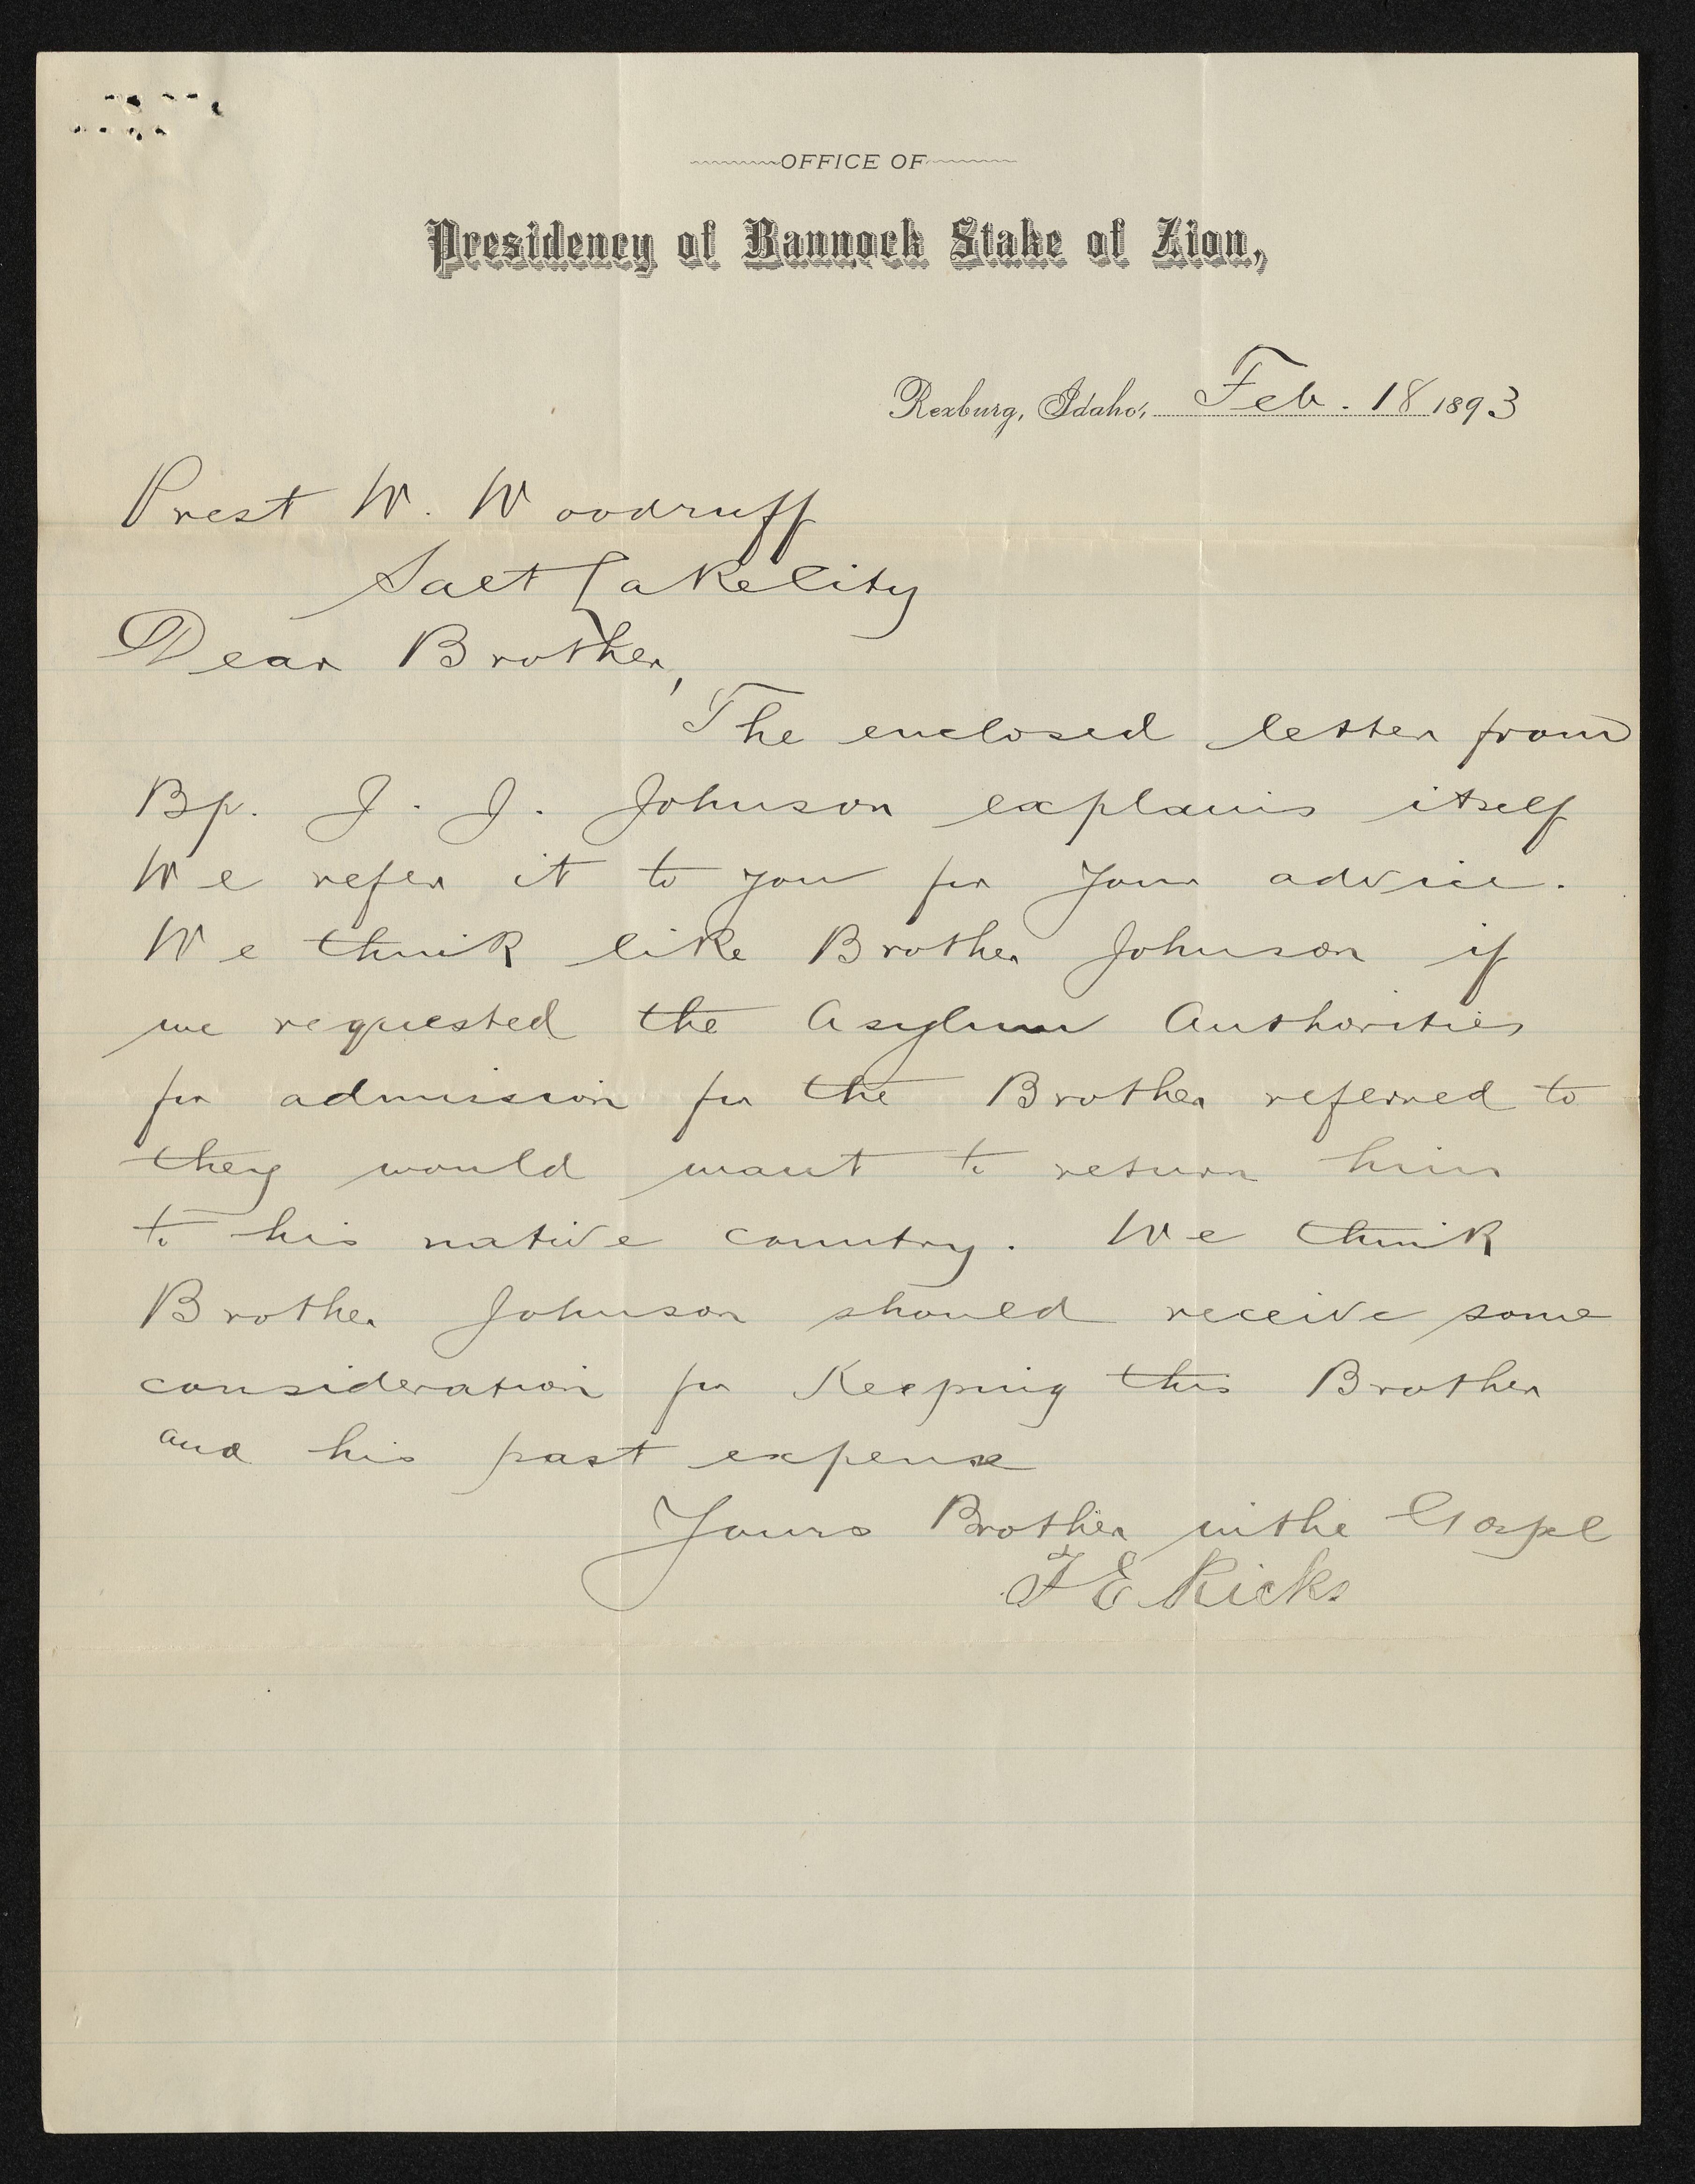 OFFICE OF
Presidency of Bannock Stake of Zion,
Rexburg, Idaho, Feb. 18 1893
Prest W. Woodruff
Salt Lake City
Dear Brother,
The enclosed letter from
Bp. J. J. Johnson explains itself
We refer it to you for your advice.
We think like Brother Johnson if
we requested the Asylum Authorities
for admission for the Brother referred to
they would want to return him
to his native country. We think
Brother Johnson should receive some
consideration for Keeping this Brother
and his past expense
Yours Brother in the Gospel
T E Ricks